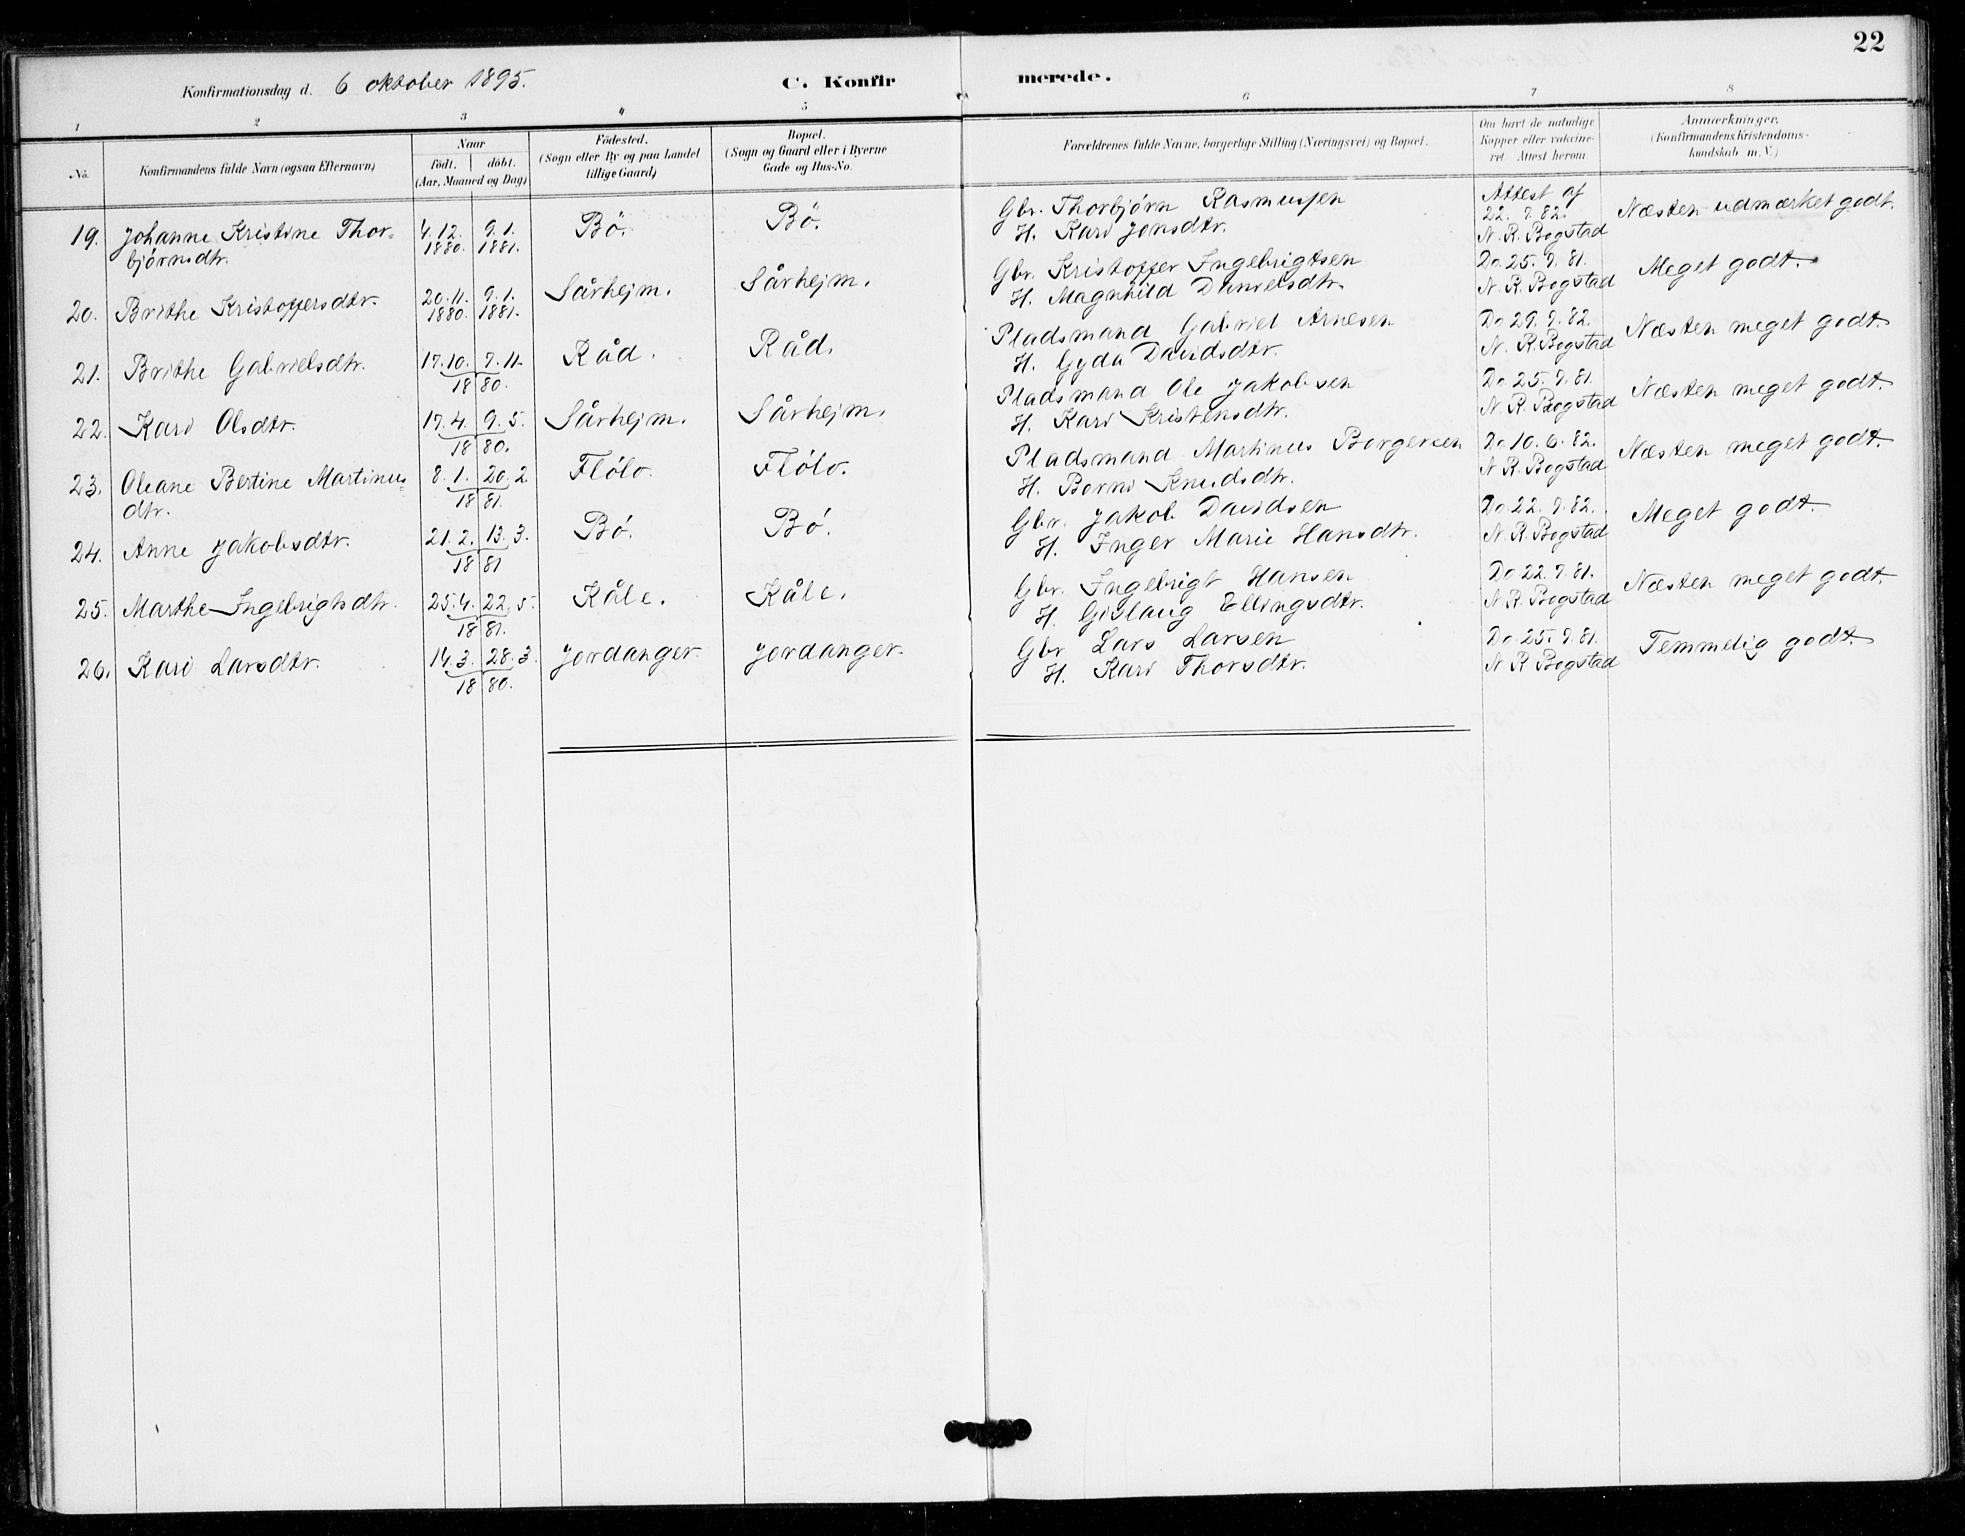 22
Konfirmationsdag d. 6 oktober 1895.
C. Konfirmerede.
1 2 3 4 5 6 7 8
No.
Konfirmandens fulde Navn (ogsaa Efternavn)
Naar
födt. döbt.
(Aar, Maaned og Dag)
Födested.
(Sogn eller By og paa Landet
tillige Gaard)
Bopæl.
(Sogn og Gaard eller i Byerne
Gade og Hus-No.
Forældrenes fulde Navne, borgerlige Stilling (Næringsvei) og Bopæl.
Om havt de naturlige
Kopper eller vakcine-
ret Attest herom.
Anmærkninger.
(Konfirmandens Kristendoms-
kundskab m. V.)
19. Johanne Kristine Thor- 4.12. 9.1. Bö. Bö. Gbr. Thorbjørn Rasmussen Attest af Næsten udmærket godt.
bjørnsdtr. 1880. 1881. H. Kari Jonsdtr. 22. 9. 82.
N. R. Bogstad
20. Brithe Kristoffersdtr. 20.11. 9.1. Sårhejm. Sårhejm. Gbr. Kristoffer Ingebrigtsen Do 25. 9. 81. Meget godt.
1880. 1881. H. Magnhild Danielsdtr. N. R. Bogstad
21. Brithe Gabrielsdtr. 17.10. 7.11. Råd. Råd. Pladsmand Gabriel Arnesen Do 29. 9. 82. Næsten meget godt.
18 80. H. Gyda Davidsdtr. N. R. Bogstad
22. Kari Olsdtr. 17.4. 9.5. Sårhejm. Sårhejm. Pladsmand Ole Jakobsen Do 25. 9. 81. Næsten meget godt.
18 80. H. Kari Kristensdtr. N. R. Bogstad
23. Oleane Bertine Martinus- 8.1. 20.2 Flölo. Flölo. Pladsmand Martinus Borgersen Do 10. 6. 82. Næsten meget godt.
dtr. 18 81. H. Borni Knudsdtr. N R. Bogstad
24. Anne Jakobsdtr. 21.2. 13.3. Bö. Bö. Gbr. Jakob Davidsen Do 22. 9. 82. Meget godt.
18 81 H. Inger Marie Hansdtr. N. R. Bogstad
25. Marthe Ingebrigtsdtr. 25.4. 22.5. Kåle. Kåle. Gbr. Ingebrigt Hansen Do 22. 9. 81. Næsten meget godt.
18 81. H. Gislaug Ellingsdtr. N. R. Bogstad
26. Kari Larsdtr. 14.3. 28.3. Jordanger. Jordanger. Gbr Lars Larsen Do 25. 9. 81. Temmelig godt.
18 80. H. Kari Thorsdtr. N R Bogstad